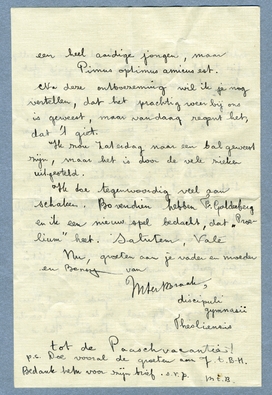 een heel aardige jongen, maar
Pimus optimus amicus est.
Na deze ontboezeming wil ik je nog
vertellen, dat het prachtig weer bij ons
is geweest, maar vandaag regent het,
dat 't giet.
Ik zou Zaterdag naar een bal geweest
zijn, maar het is door de vele zieken
uitgesteld.
Ik doe tegenwoordig veel aan
schaken. Bovendien hebben
en ik een nieuw spel bedacht, dat "Proe-
lium" heet. Salutem, Vale
Nu, groeten aan je vader en moeder
en van
MterBraak,
discipuli
gymnasii
Thielensis
tot de Paaschvacantie!
p.s. Doe vooral de groeten aan J. t. B.-H.
Bedank hem voor zijn brief. s.v.p.
M t. B.